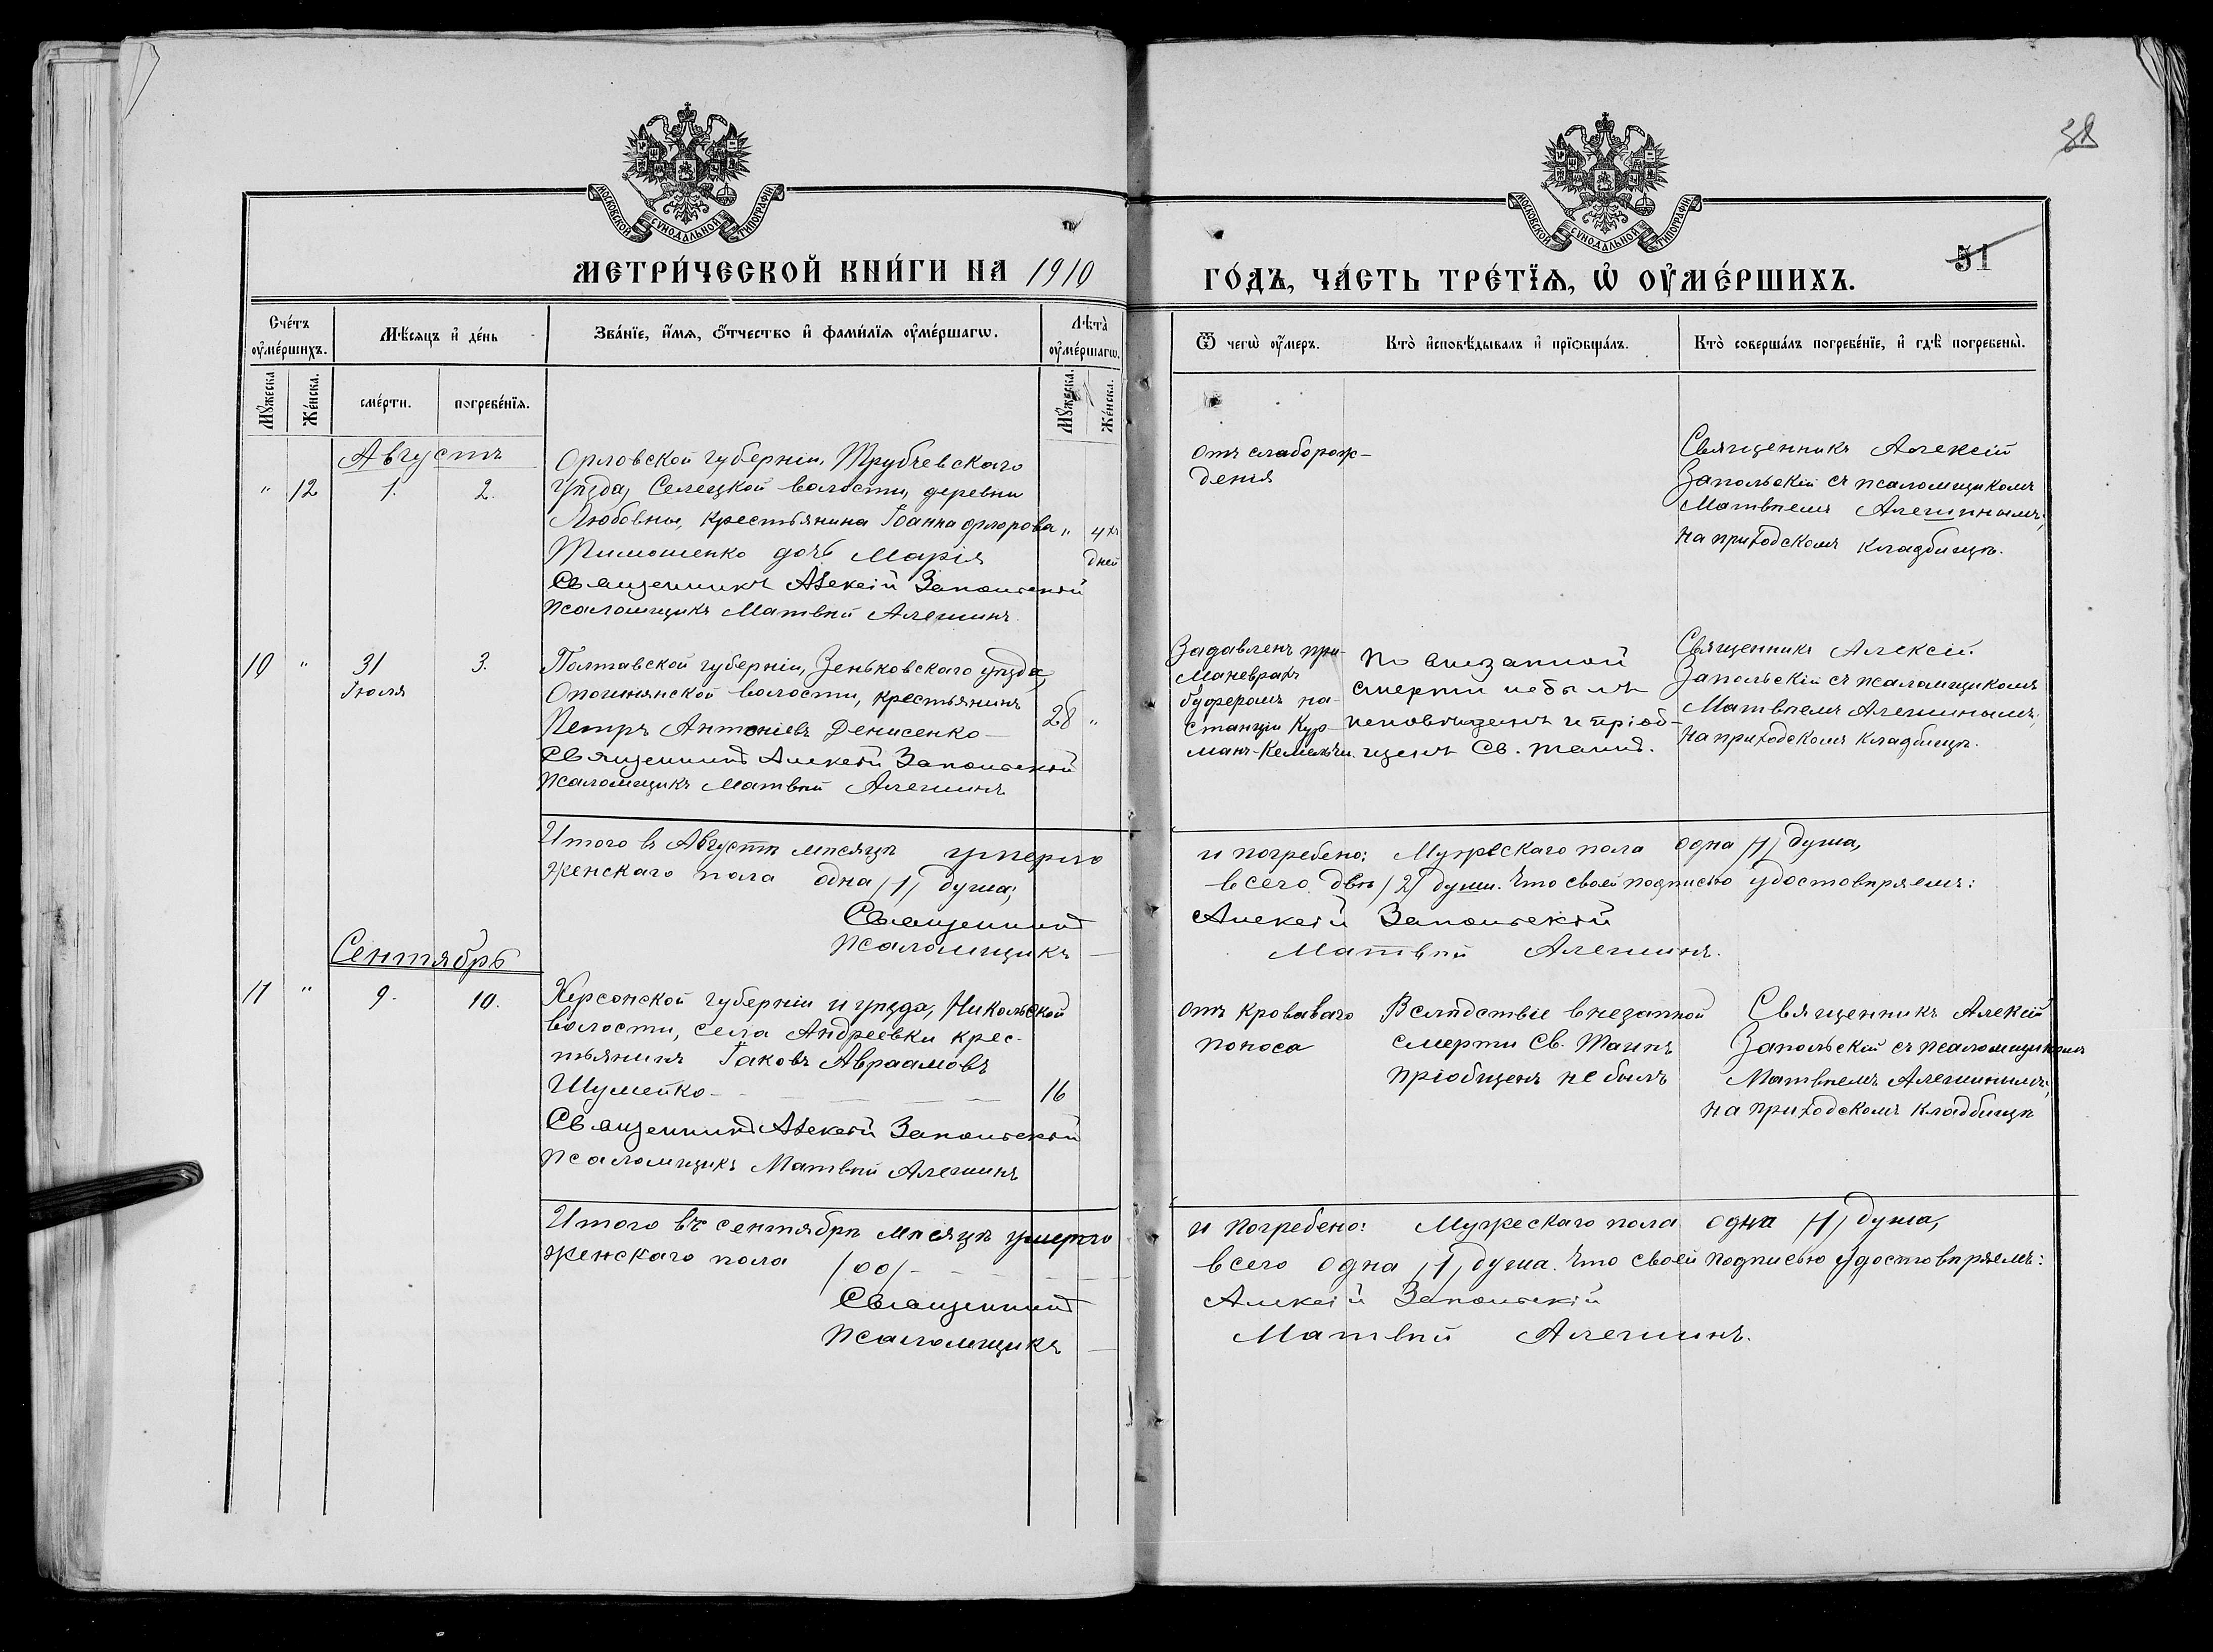 38
МОСКОВСКОЙ СѴНОДАЛЬНОЙ ТИПОГРАФІИ
МОСКОВСКОЙ СѴНОДАЛЬНОЙ ТИПОГРАФІИ
51
МЕТРИ́ЧЕСКОЙ КНИ́ГИ НА 1910
ГО́ДЪ, ЧА́СТЬ ТРЕ́ТЇѦ, Ѡ҆ ОУ҆МЕ́РШИХЪ.
Сче́тъ оу҆ме́ршихъ.
Мѣ́сяцъ и҆ де́нь
Зва́нїе, и҆́мя, ѻ҆́тчество и҆ фами́лїя оу҆ме́ршагѡ.
Лѣта̀ оу҆ме́ршагѡ.
Ѿ чегѡ̀ оу҆́меръ.
Кто̀ и҆сповѣ́дывалъ и҆ прїѻбща́лъ.
Кто̀ соверша́лъ погребе́нїе, и҆ гдѣ̀ погребены̀.
Мꙋ́жеска
Же́нска.
сме́рти.
погребе́нїя.
Мꙋ́жеска.
Же́нска.
Августъ
" 12 1. 2.
Орловской губерніи, Трубчевскаго
уѣзда, Селецкой волости, деревни
Любовны, крестьянина Іоанна Флорова " 4хъ
Тимошенко дочь Марія дней
Священникъ Алексій Запольскій
Псаломщикъ Матвѣй Алешинъ
отъ слаборож-
денія
Священникъ Алексій
Запольскій съ псаломщикомъ
Матвѣемъ Алешинымъ;
на приходскомъ кладбищѣ.
10 " 31 3.
Іюля
Полтавской губерніи, Зеньковскаго уѣзда,
Опошнянской волости, крестьянинъ
Петръ Антоніевъ Денисенко — 28 "
Священникъ Алексій Запольскій
Псаломщикъ Матвѣй Алешинъ
Задавленъ при-
маневрахъ
буферомъ на-
станціи Кур-
манъ-Кемельчи.
По внезапной
смерти небылъ
исповѣданъ и пріоб-
щенъ Св. таинъ.
Священникъ Алексій
Запольскій съ псаломщикомъ
Матвѣемъ Алешинымъ;
на приходскомъ кладбищѣ.
Итого въ Августѣ мѣсяцѣ умерло
женскаго пола одна /1/ душа;
Священникъ
Псаломщикъ —
и погребено: Мужескаго пола одна /1/ душа,
всего двѣ /2/ души. Что своей подписью удостовѣряемъ:
Алексій Запольскій
Матвѣй Алешинъ.
Сентябрь
11 " 9. 10.
Херсонской губерніи и уѣзда, Никольской
волости, села Андреевки крес-
тьянинъ Іаковъ Авраамовъ
Шумейко — — — — 16
Священникъ Алексій Запольскій
Псаломщикъ Матвѣй Алешинъ
отъ кроваваго
поноса
Вслѣдствіе внезапной
смерти Св. Таинъ
пріобщенъ не былъ
Священникъ Алексій
Запольскій съ псаломщикомъ
Матвѣемъ Алешинымъ;
на приходскомъ кладбищѣ
Итого въ сентябрѣ мѣсяцѣ умерло
женскаго пола /00/ — — — — —
Священникъ
Псаломщикъ —
и погребено: Мужескаго пола одна /1/ душа,
всего одна /1/ душа. Что своей подписью удостовѣряемъ:
Алексій Запольскій
Матвѣй Алешинъ.